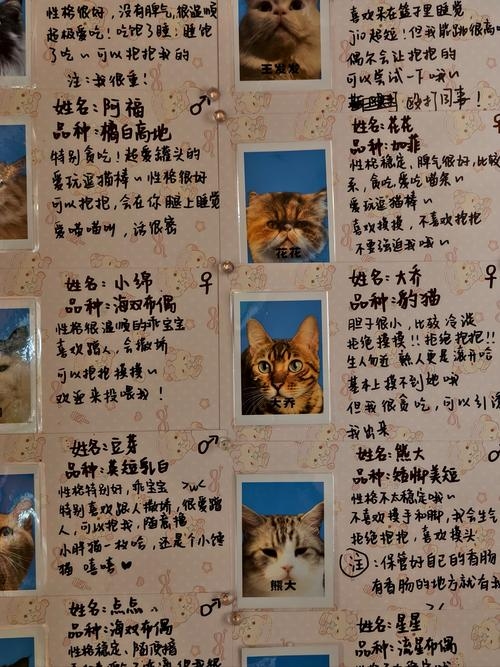 性格很好，没有脾气，很温顺
超级爱吃！吃饱了睡，睡饱
了吃～可以抱抱我的
注：我很重！
姓名：阿福 ♂
品种：橘白高地
特别贪吃！超爱罐头的
爱玩逗猫棒～性格很好
可以抱抱，会在你腿上睡觉
爱喵喵叫，话很密
姓名：小绵 ♀
品种：海双布偶
性格很温顺的乖宝宝
喜欢踏人，会撒娇
可以抱抱摸摸～
欢迎来投喂我！
姓名：豆芽 ♂
品种：英短乳白
性格特别好，乖宝宝 >w<
特别喜欢跟人撒娇，很爱踏
人，可以抱我，随意撸
小胖猫一枚哈，还是个小馋
猫 嘻嘻♥
姓名：点点 ♂
品种：海双布偶
性格稳定，随便撸
王发发
喜欢呆在篮子里睡觉
jio超短！但我能跳很高
偶尔会让抱抱的
可以尝试一下哦～
殴打同事！
姓名：花花
品种：加菲
性格稳定，脾气很好，比较
系，贪吃爱吃猫条～
爱玩逗猫棒～
喜欢摸摸，不喜欢抱抱
不要强迫我哦～
花花
姓名：大乔 ♀
品种：豹猫
胆子很小，比较冷淡
拒绝摸摸！！拒绝抱抱！！
生人勿近 熟人更是滚开哈
基本上摸不到她哦
但我很贪吃，可以引诱
我出来
大乔
姓名：熊大 ♂
品种：矮脚美短
性格不太稳定哦～
不喜欢摸手和脚，我会生气
拒绝抱抱，喜欢摸头
注：保管好自己的香肠
有香肠的地方就有我
熊大
姓名：星星
品种：流星布偶